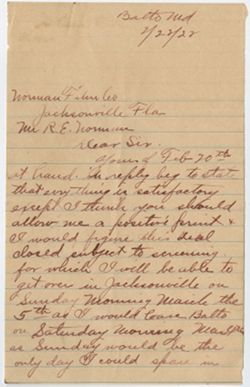 Balto Md
2/22/22
Norman Film Co
Jacksonville Fla.
Mr R. E. Norman
Dear Sir.
Yours of Feb 20th
at hand. In reply beg to state
that everything is satisfactory
except I think you should
allow me a positive permit &
I would figure this deal
closed subject to screening
for which I will be able to
get over in Jacksonville on
Sunday Morning March the
5th as I would leave Balto
on Saturday Morning Mar
as Sunday would be the
only day I could spare in